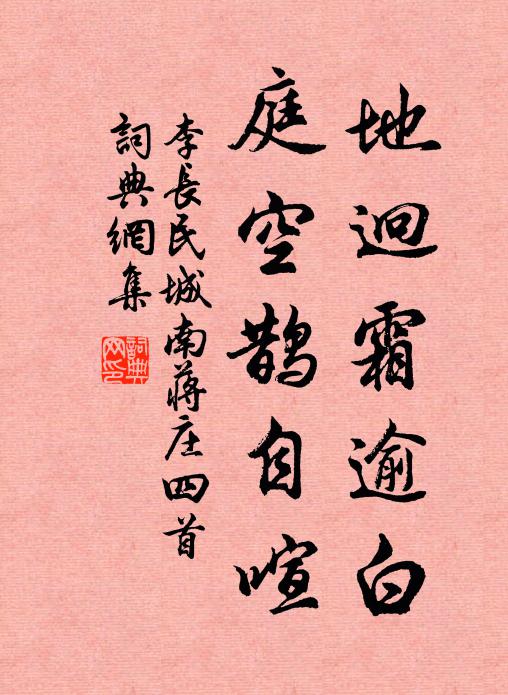 地迥霜逾白
庭空鹊自喧
李長民城南蒋庄四首
詞典網集
詞典網印